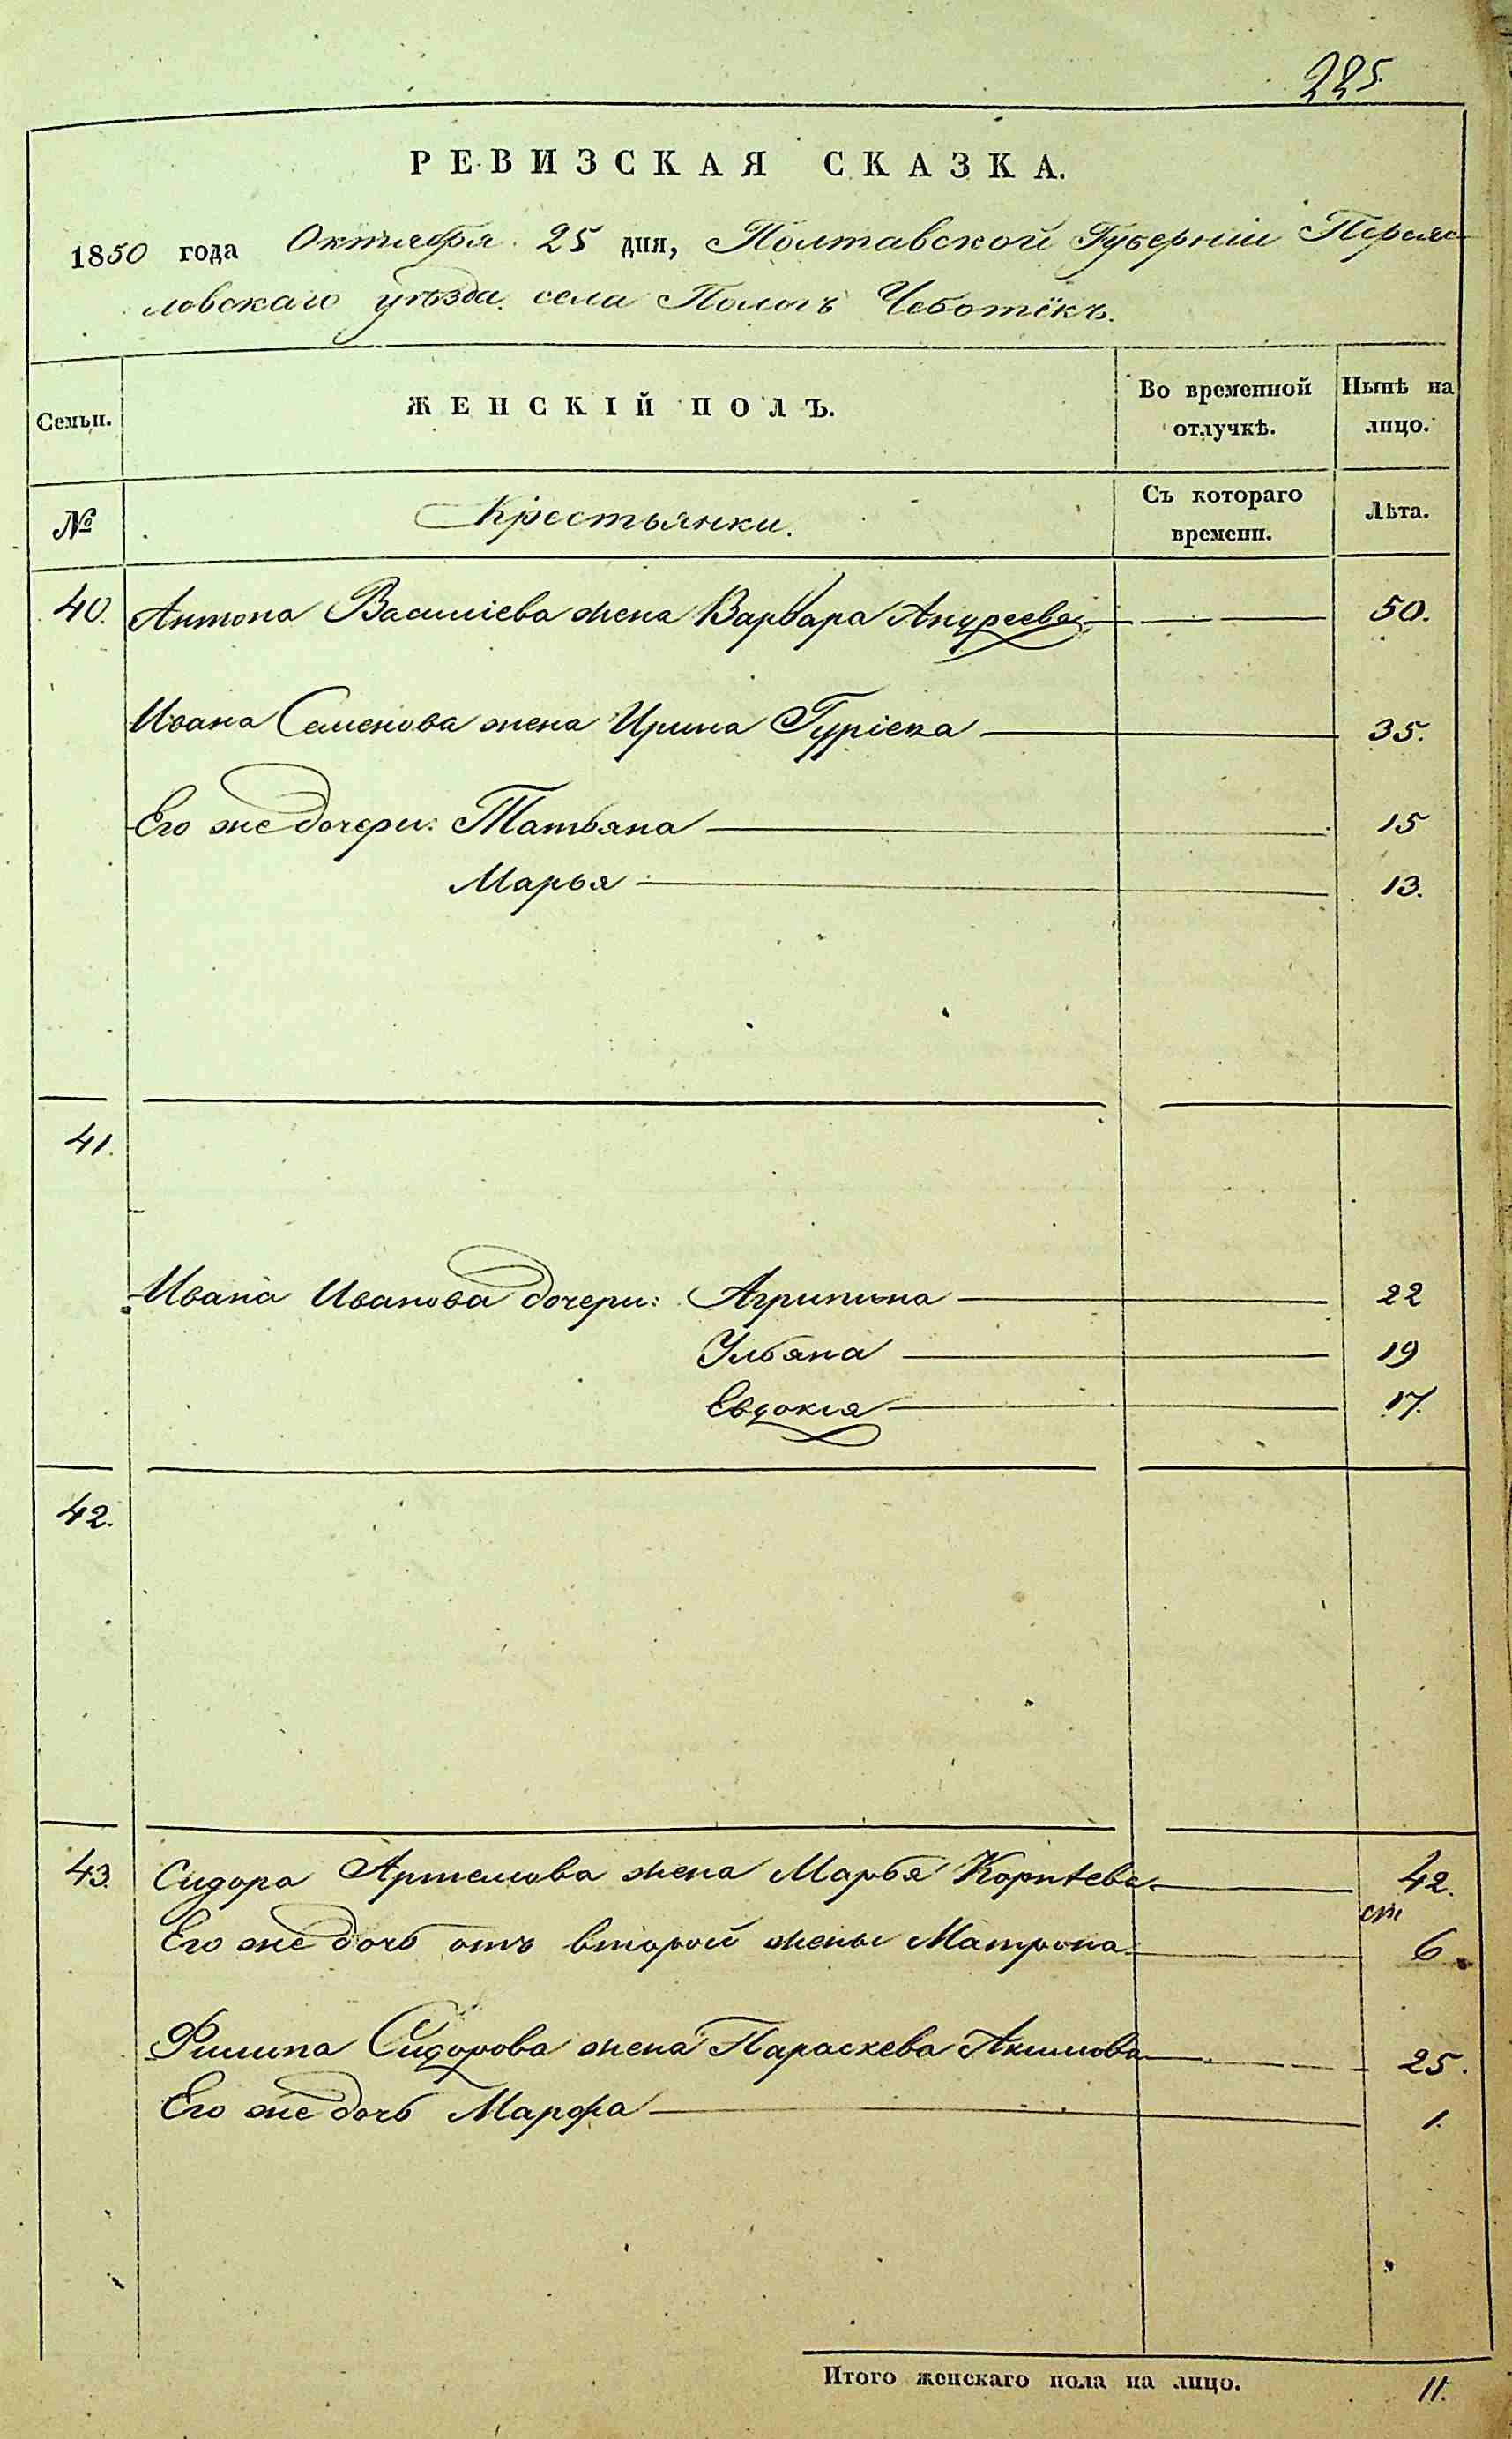 225.
РЕВИЗСКАЯ СКАЗКА.
1850 года Октября 25 дня, Полтавской Губерніи Переяс-
ловскаго уѣзда села Пологъ Чеботёкъ.
Семьи. ЖЕНСКІЙ ПОЛЪ. Во временной отлучкѣ. Нынѣ на лицо.
№ Крестьянки. Съ котораго времени. Лѣта.
40. Антона Василіева жена Варвара Андреева 50.
Ивана Семенова жена Ирина Гуріева 35.
Его же дочери: Татьяна 15
Марья 13.
41.
Ивана Иванова дочери: Агрипина 22
Ульяна 19
Евдокия 17.
42.
43. Сидора Артемова жена Марья Корнѣева 42.
Его же дочь отъ второй жены Матрона 6
Филипа Сидорова жена Параскева Акимова 25.
Его же дочь Марфа 1.
Итого женскаго пола на лицо. 11.